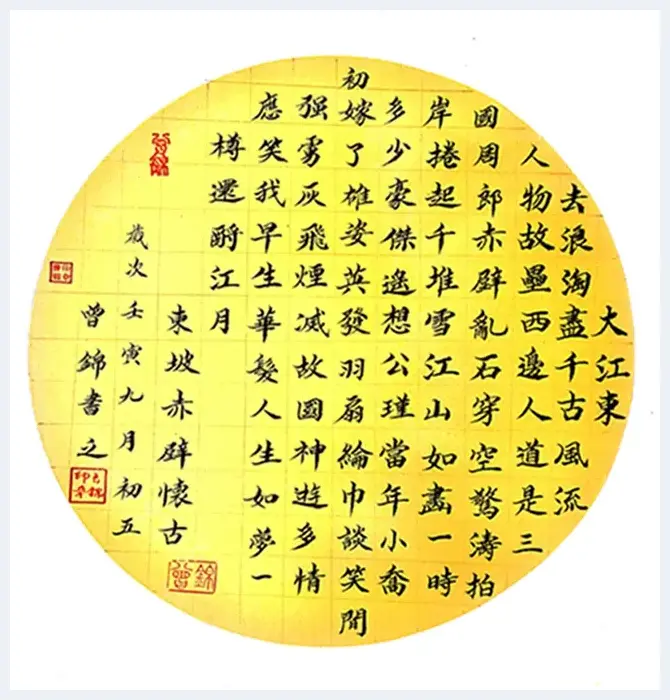 大江東
去浪淘盡千古風流
人物故壘西邊人道是三
國周郎赤壁亂石穿空驚濤拍
岸捲起千堆雪江山如畫一時
多少豪傑遙想公瑾當年小喬
初嫁了雄姿英發羽扇綸巾談笑間
强虜灰飛煙滅故國神遊多情
應笑我早生華髮人生如夢一
樽還酹江月
東坡赤壁懷古
歲次壬寅九月初五
曾錦書之
曾錦